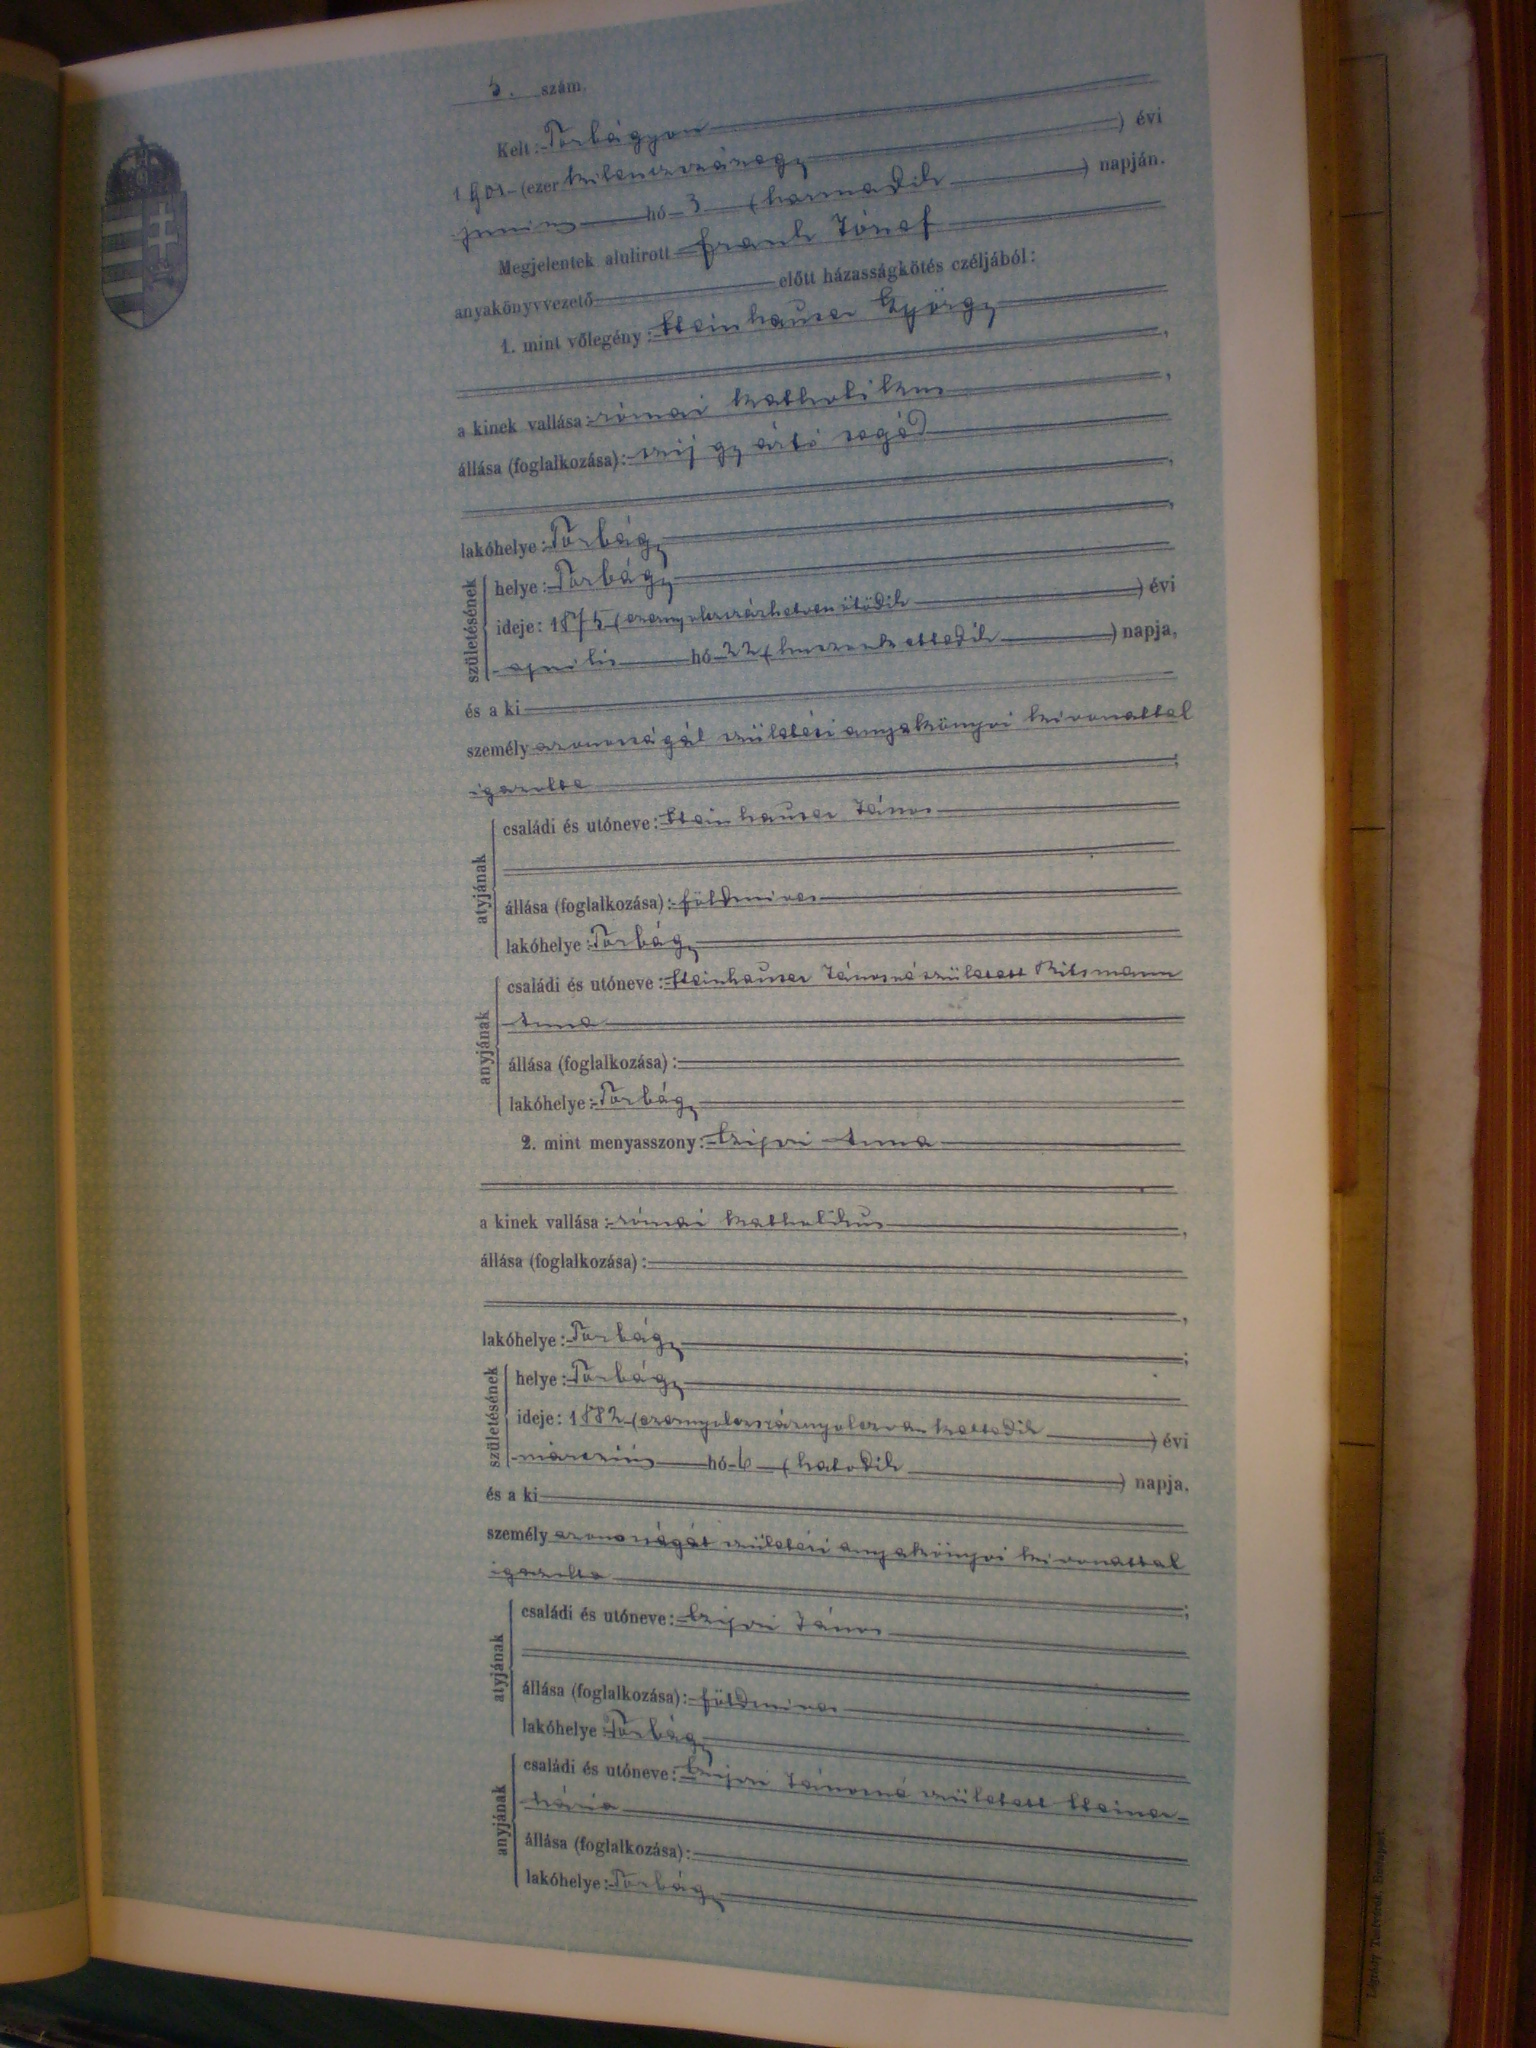 5. szám.
Kelt: Torbágyon
1901 (ezer kilenczszázegy) évi
junius hó 3 (harmadik) napján.
Megjelentek alulirott Frank József
anyakönyvvezető előtt házasságkötés czéljából:
1. mint vőlegény: Steinhauser György
a kinek vallása: római katholikus,
állása (foglalkozása): szijgyártó segéd
lakóhelye: Torbágy
születésének
helye: Torbágy
ideje: 1875 (ezernyolczszázhetvenötödik) évi
április hó 22 (huszonkettedik) napja,
és a ki
személyazonosságát születési anyakönyvi kivonattal
igazolta;
atyjának
családi és utóneve: Steinhauser János
állása (foglalkozása): földmives
lakóhelye: Torbágy
anyjának
családi és utóneve: Steinhauser Jánosné született Ritsmann
Anna
állása (foglalkozása):
lakóhelye: Torbágy
2. mint menyasszony: Czijvi Anna
a kinek vallása: római katholikus,
állása (foglalkozása):
lakóhelye: Torbágy;
születésének
helye: Torbágy
ideje: 1882 (ezernyolczszáznyolczvankettedik) évi
márczius hó 6 (hatodik) napja,
és a ki
személyazonosságát születési anyakönyvi kivonattal
igazolta;
atyjának
családi és utóneve: Czijvi János
állása (foglalkozása): földmives
lakóhelye: Torbágy
anyjának
családi és utóneve: Czijvi Jánosné született Steiner
Mária
állása (foglalkozása):
lakóhelye: Torbágy
Légrády Testvérek, Budapest.